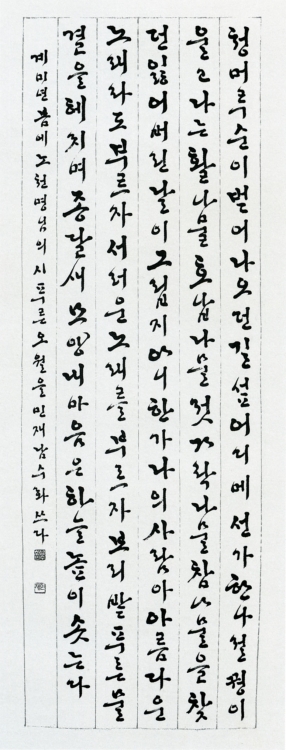 청머루순이벋어나오던길섶어디메선가한나절꿩이
울고나는활나물호납나물젓가락나물참나물을찾
던잃어버린날이그립지아니한가나의사람아아름다운
노래라도부르자서러운노래를부르자보리밭푸른물
결을헤치며종달새모양내마음은하늘높이솟는다
계미년봄에노천명님의시푸른오월을민재남수화쓰다